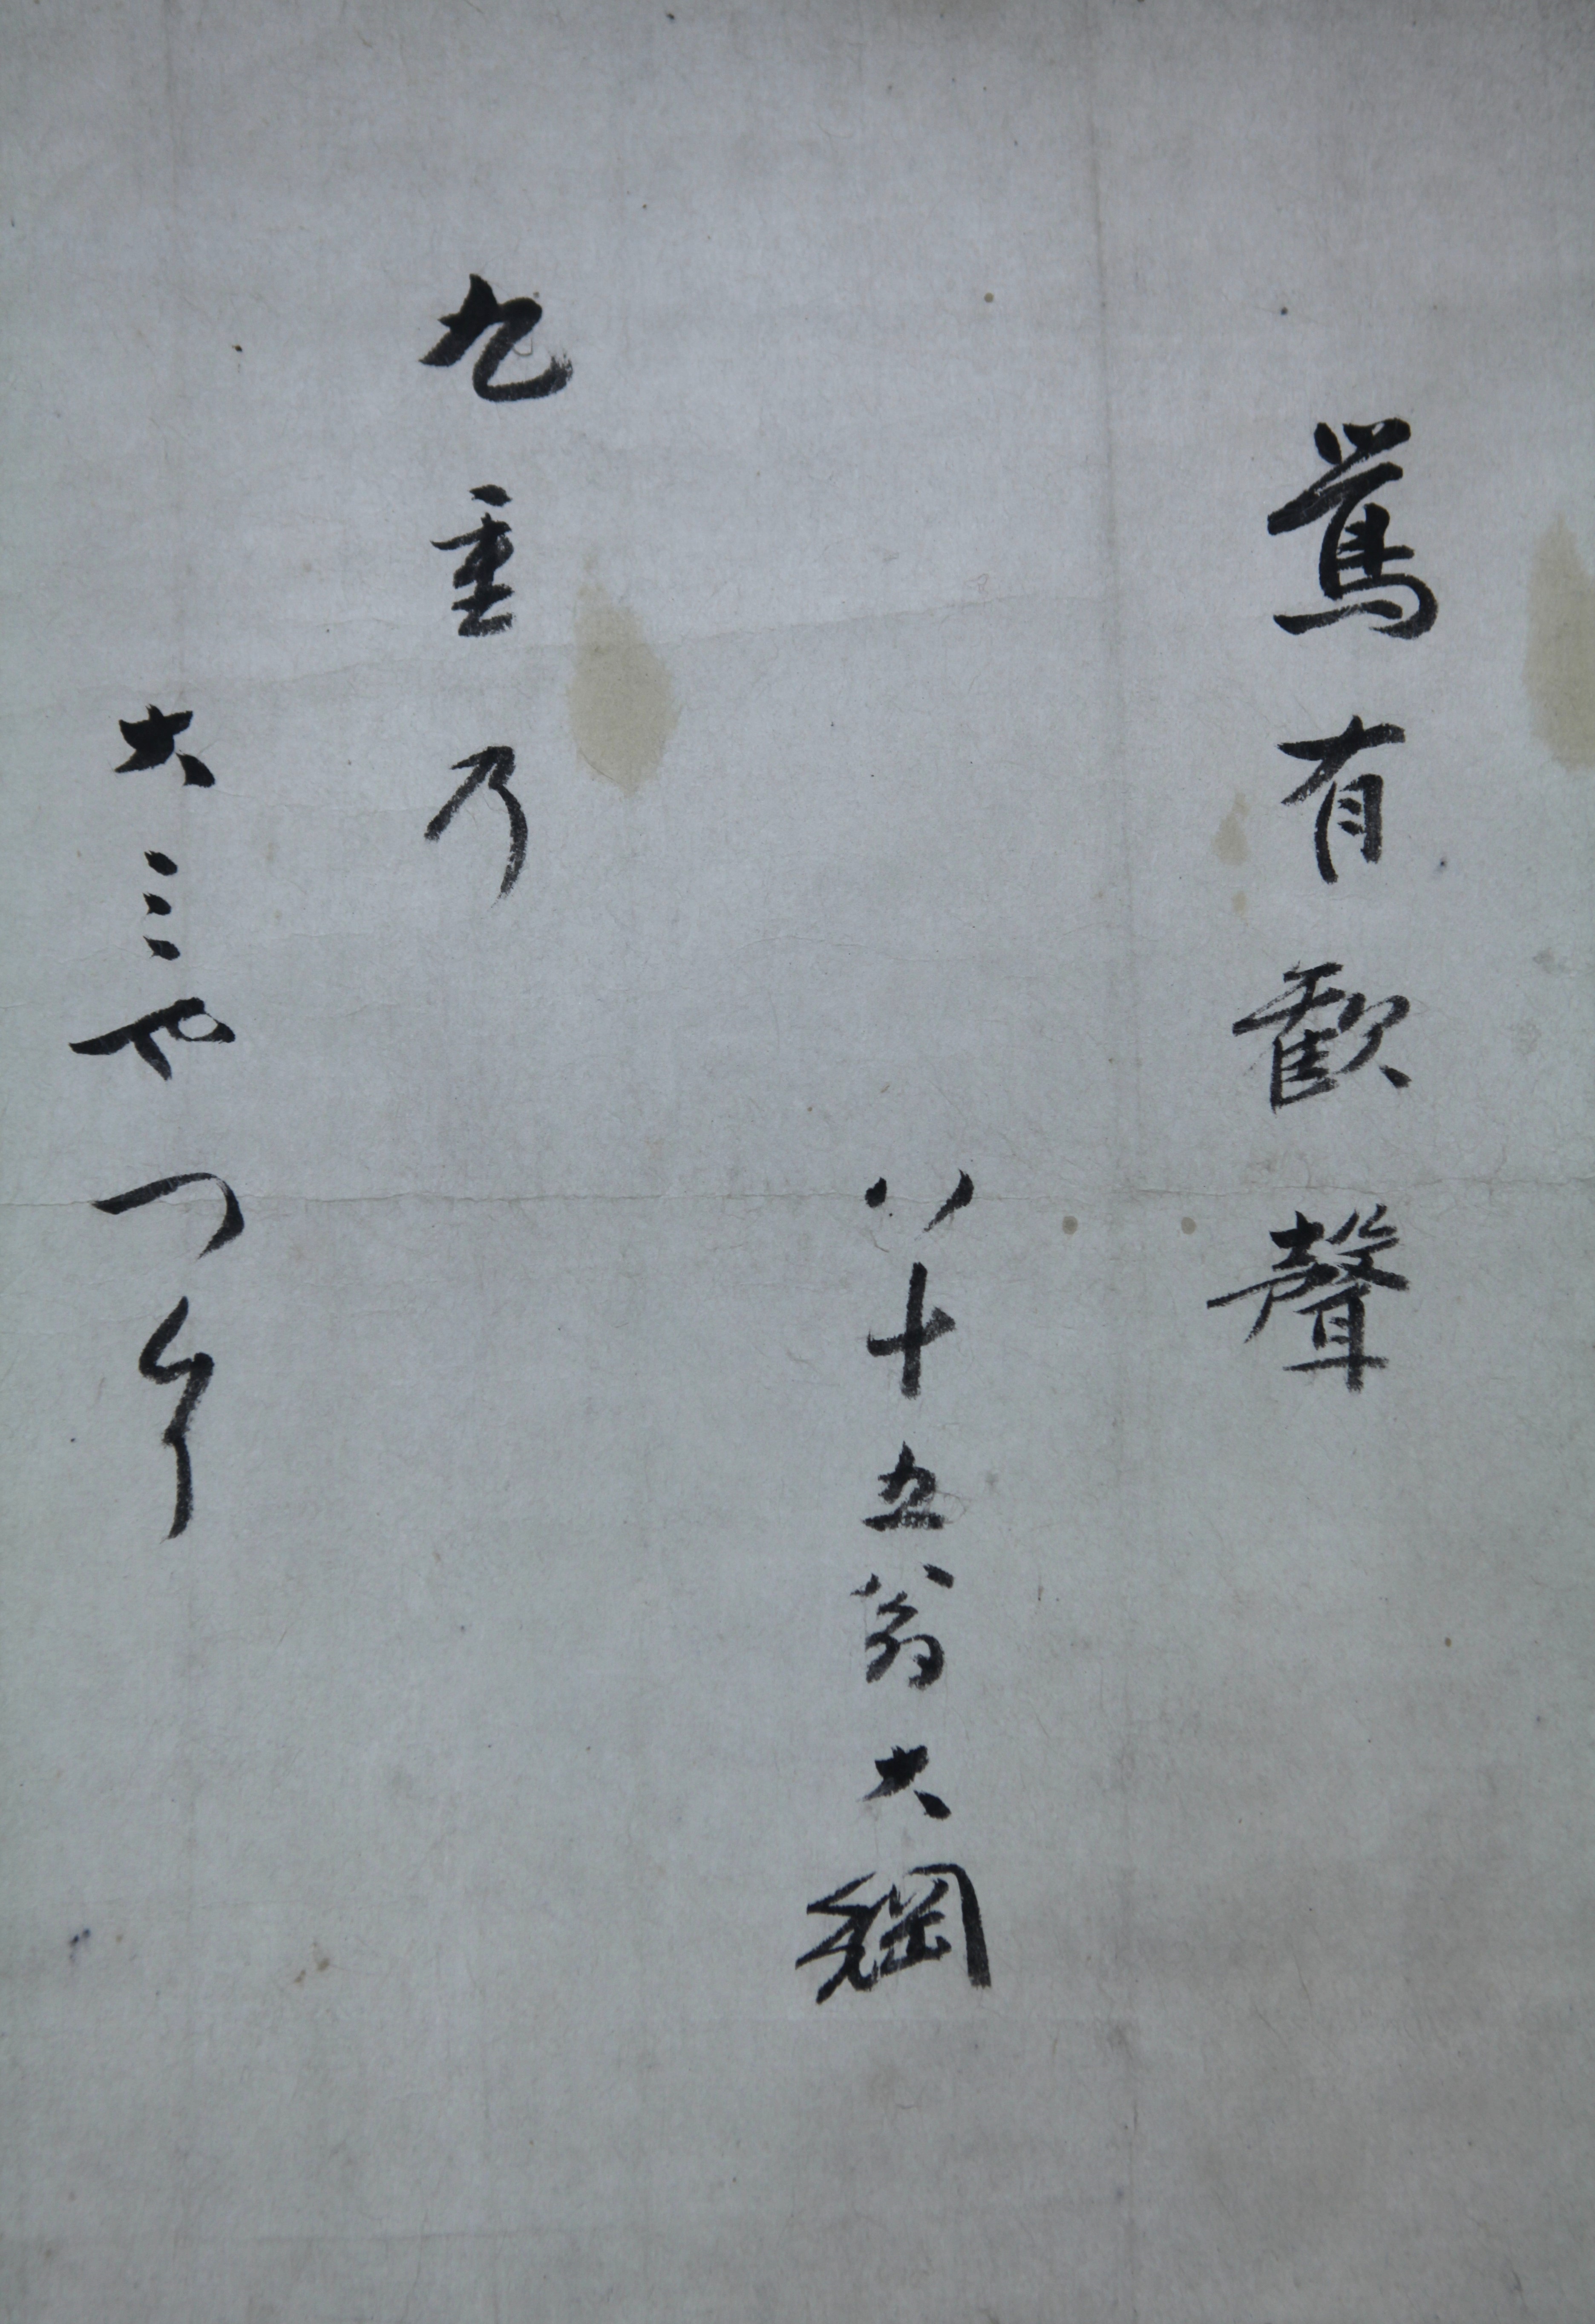 鴬有歓聲
八十五翁大綱
九重乃
大ミやつ